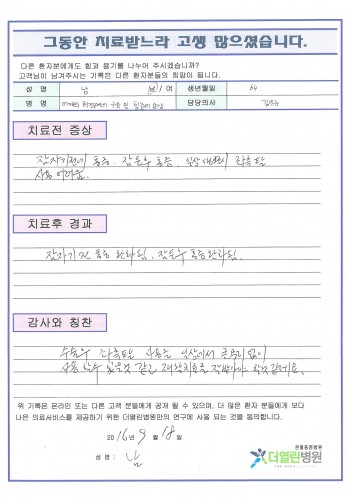 그동안 치료받느라 고생 많으셨습니다.
다른 환자분에게도 힘과 용기를 나누어 주시겠습니까?
고객님이 남겨주시는 기록은 다른 환자분들의 희망이 됩니다.
성 명 남 남 / 여 생년월일 64
병 명 담당의사
치료전 증상
잠자기전에 통증, 잠든후 통증, 일상생활에 좌측팔
사용 어려움.
치료후 경과
잠자기 전 통증 완화됨, 잠든후 통증완화됨.
감사와 칭찬
수술후 좌측팔 사용은 일상에서 큰무리 없이
사용 할수 있을것 같고 재활치료를 잘받아야 할것같네요.
위 기록은 온라인 또는 다른 고객 분들에게 공개 될 수 있으며, 더 많은 환자 분들에게 보다
나은 의료서비스를 제공하기 위한 더열린병원만의 연구에 사용 되는 것을 동의합니다.
2016년 9월 18일
성 명: 남
관절중점병원
더열린병원